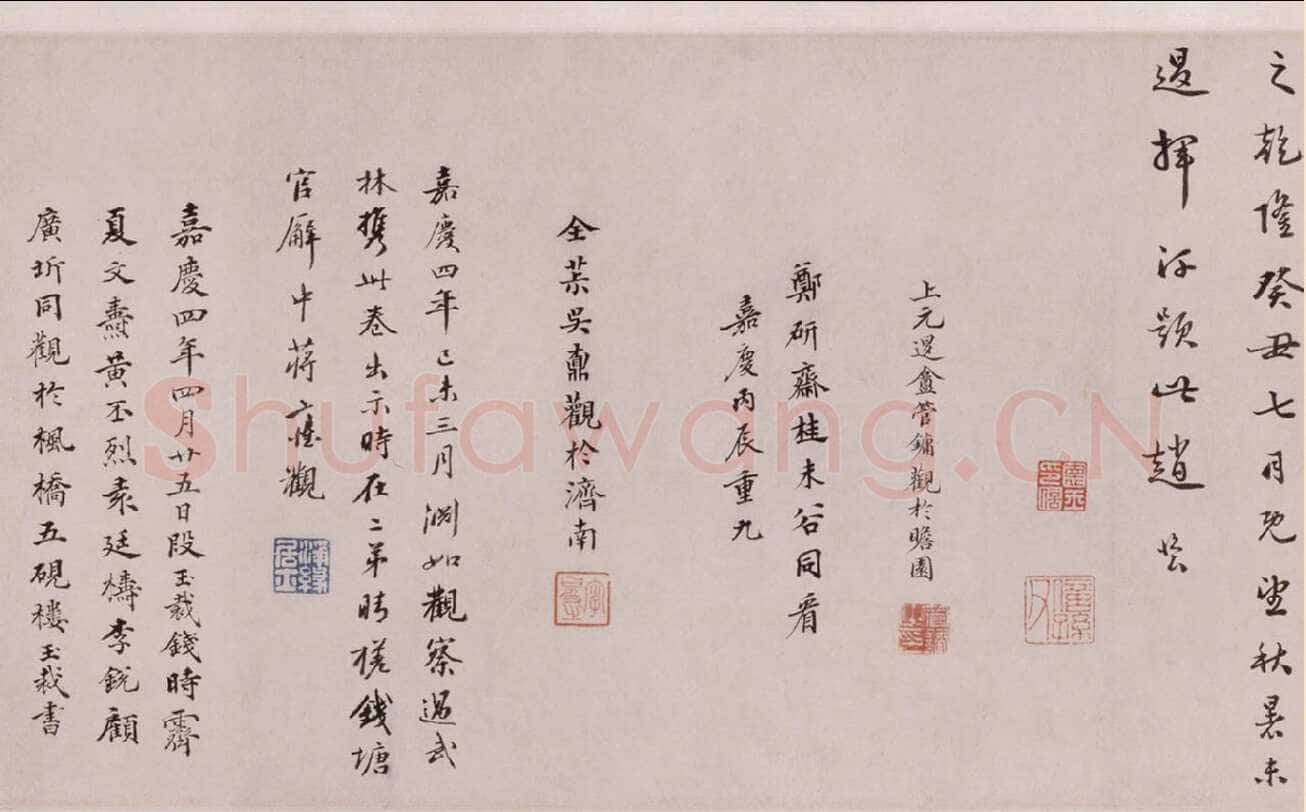 之乾隆癸丑七月既望秋暑未
退揮汗題此趙
上元退盦管鏞觀於瞻園
鄭研齋桂未谷同看
嘉慶丙辰重九
全茶吳鼒觀於濟南
嘉慶四年己未三月淵如觀察過武
林攜此卷出示時在二弟時槎錢塘
官廨中蔣 觀
嘉慶四年四月廿五日段玉裁錢時霽
夏文燾黃丕烈袁廷檮李銳顧
廣圻同觀於楓橋五硯樓玉裁書
Shufawang.CN